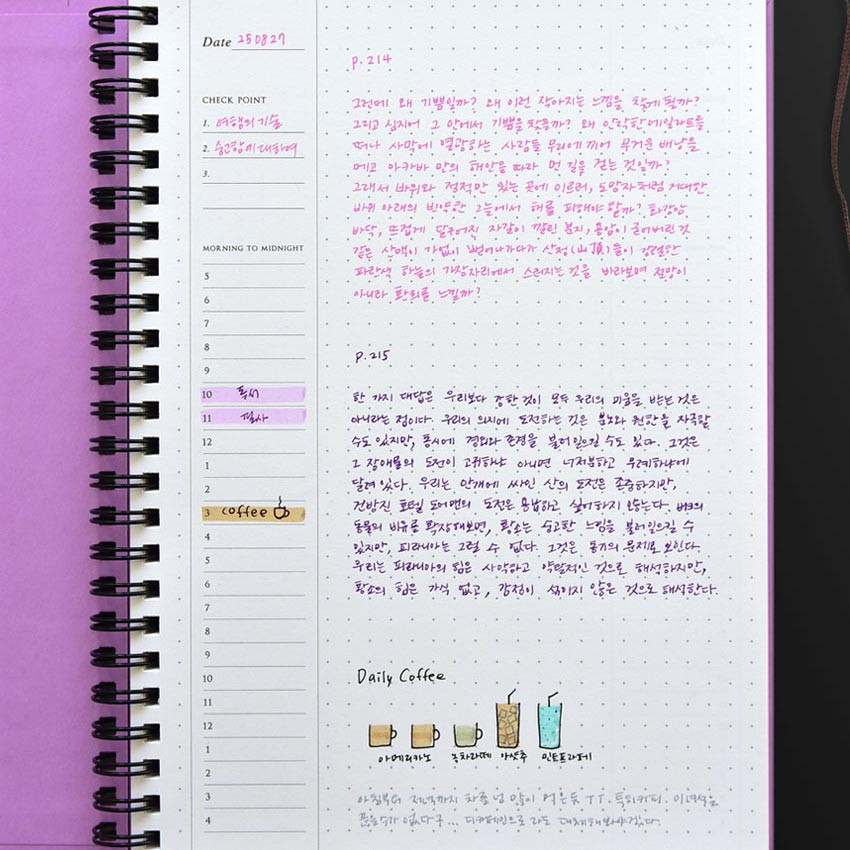 Date 250827
CHECK POINT
1. 여행의 기술
2. 숭고함에 대하여
3.
MORNING TO MIDNIGHT
5
6
7
8
9
10 독서
11 필사
12
1
2
3 coffee
4
5
6
7
8
9
10
11
12
1
2
3
4
p.214
그런데 왜 기쁨일까? 왜 이런 작아지는 느낌을 찾게 될까?
그리고 심지어 그 안에서 기쁨을 찾을까? 왜 안락한 에일라트를
떠나 사막에 열광하는 사람들 무리에 끼어 무거운 배낭을
메고 아카바 만의 해안을 따라 먼 길을 걷는 것일까?
그래서 바위와 정적만 있는 곳에 이르러, 도망자처럼 거대한
바위 아래의 빈약한 그늘에서 해를 피해야 할까? 화강암
바닥, 뜨겁게 달구어진 자갈이 깔린 분지, 용암이 굳어버린 것
같은 산맥이 가없이 뻗어나가다가 산정(山頂)들이 강렬한
파란색 하늘의 가장자리에서 스러지는 것을 바라보며 절망이
아니라 환희를 느낄까?
p.215
한 가지 대답은 우리보다 강한 것이 모두 우리의 미움을 받는 것은
아니라는 점이다. 우리의 의지에 도전하는 것은 분노와 원한을 자극할
수도 있지만, 동시에 경외와 존경을 불러일으킬 수도 있다. 그것은
그 장애물의 도전이 고귀하냐 아니면 너저분하고 무례하냐에
달려 있다. 우리는 안개에 싸인 산의 도전은 존중하지만,
건방진 호텔 도어맨의 도전은 용납하고 싶어하지 않는다. 버크의
동물의 비유를 확장해보면, 황소는 숭고한 느낌을 불러일으킬 수
있지만, 피라냐는 그럴 수 없다. 그것은 동기의 문제로 보인다.
우리는 피라냐의 힘은 사악하고 약탈적인 것으로 해석하지만,
황소의 힘은 가식 없고, 감정이 섞이지 않은 것으로 해석한다.
Daily Coffee
아메리카노 녹차라떼 아샷추 민트프라페
아침부터 저녁까지 차를 넘 많이 먹은듯 TT. 특히커피. 이녀석은
끊을수가 없다구... 디카페인으로 라도 대체해봐야겠다.